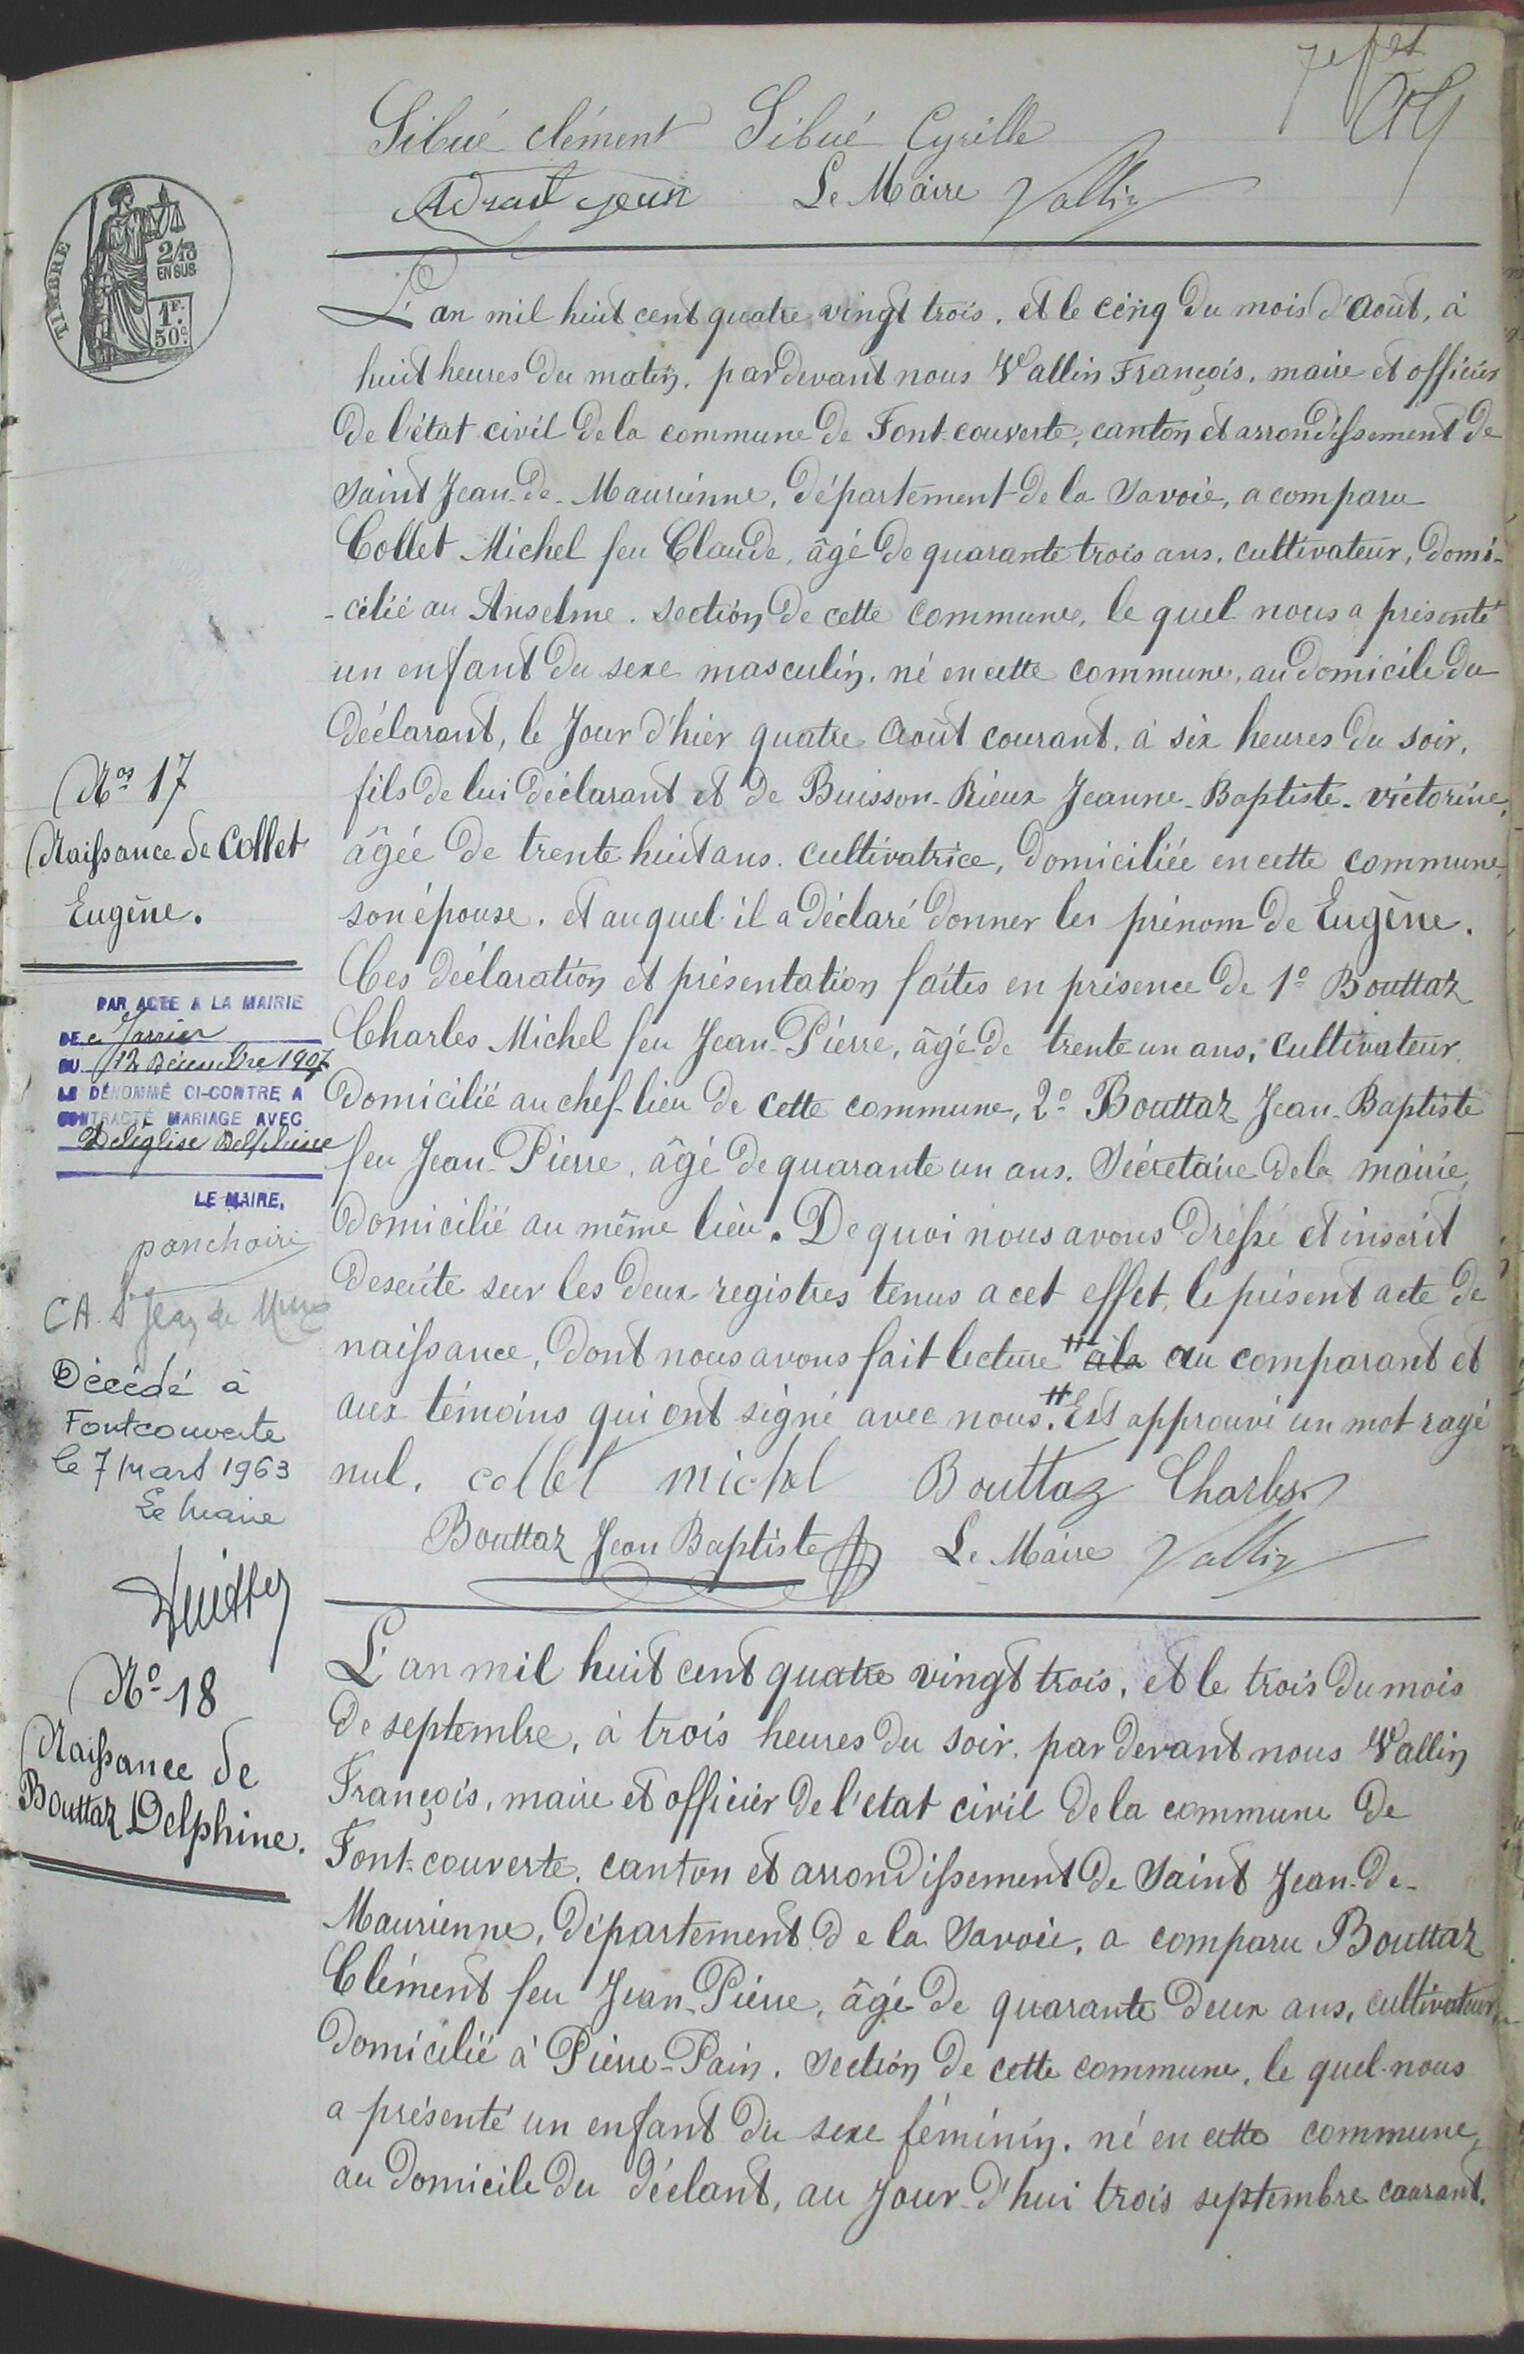 7e f et
Sibué clément Sibué Cyrille
Adrait jean Le Maire Vallin
TIMBRE
2/10
EN SUS
1F.
50c.
L'an mil huit cent quatre vingt trois, et le cinq du mois d'Août, à
huit heures du matin, pardevant nous Vallin François, maire et officier
de l'état civil de la commune de Font-couverte, canton et arrondissement de
Saint Jean-de-Maurienne, département de la Savoie, a comparu
Collet Michel feu Claude, âgé de quarante trois ans, cultivateur, domi-
-cilié au Anselme, section de cette commune, le quel nous a présenté
un enfant du sexe masculin, né en cette commune, au domicile du
déclarant, le Jour d'hier quatre Août courant, à six heures du soir,
fils de lui déclarant et de Buisson-Rieux Jeanne-Baptiste-victorine,
âgée de trente huit ans, cultivatrice, domiciliée en cette commune,
son épouse, et auquel il a déclaré donner les prénom de Eugène.
Ces déclaration et présentation faites en présence de 1º Bouttaz
Charles Michel feu Jean-Pierre, âgé de trente un ans, cultivateur,
domicilié au chef-lieu de cette commune, 2º Bouttaz Jean-Baptiste
feu Jean-Pierre, âgé de quarante un ans, Sécretaire de la mairie,
domicilié au même lieu. De quoi nous avons dressé et inscrit
desuite sur les deux registres tenus a cet effet, le présent acte de
naissance, dont nous avons fait lecture # à la au comparant et
aux témoins qui ont signé avec nous. # Est approuvé un mot rayé
nul. collet michel Bouttaz Charles
Bouttaz Jean Baptiste Le Maire Vallin
Nos 17
Naissance de Collet
Eugène.
PAR ACTE A LA MAIRIE
DE Jarrier
DU 12 Décembre 1907
LE DÉNOMMÉ CI-CONTRE A
CONTRACTÉ MARIAGE AVEC
Deléglise Delphine
LE MAIRE,
CA. St Jean de
Décédé à
Fontcouverte
le 7 mars 1963
Le Maire
No 18
Naissance de
Bouttaz Delphine.
L'an mil huit cent quatre vingt trois, et le trois du mois
de septembre, à trois heures du soir, par devant nous Vallin
François, maire et officier de l'etat civil de la commune de
Font-couverte, canton et arrondissement de Saint Jean-de-
Maurienne, département de la Savoie, a comparu Bouttaz
Clément feu Jean-Pierre, âgé de quarante deux ans, cultivateur,
domicilié à Pierre-Pain, Section de cette commune, le quel nous
a présenté un enfant du sexe féminin, né en cette commune,
au domicile du déclant, au Jour-d'hui trois septembre courant,